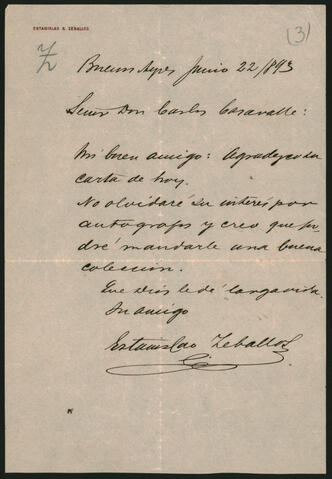 ESTANISLAO S. ZEBALLOS
(3)
Buenos Ayres Junio 22/893
Señor Don Carlos Casavalle:
Mi buen amigo: Agradezco su
carta de hoy.
No olvidaré su interés por
autografos y creo que po-
dré mandarle una buena
coleccion.
Que Dios le dé larga vida.
Su amigo
Estanislao Zeballos